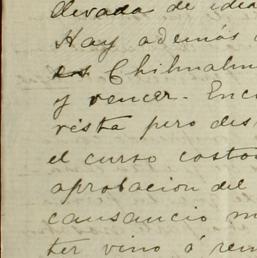 elevada de idea
Hay además
en Chihuahu
y vencer. Enc
vista pero des
el curso costo
aprobacion del
causancio m
ter vino á rem